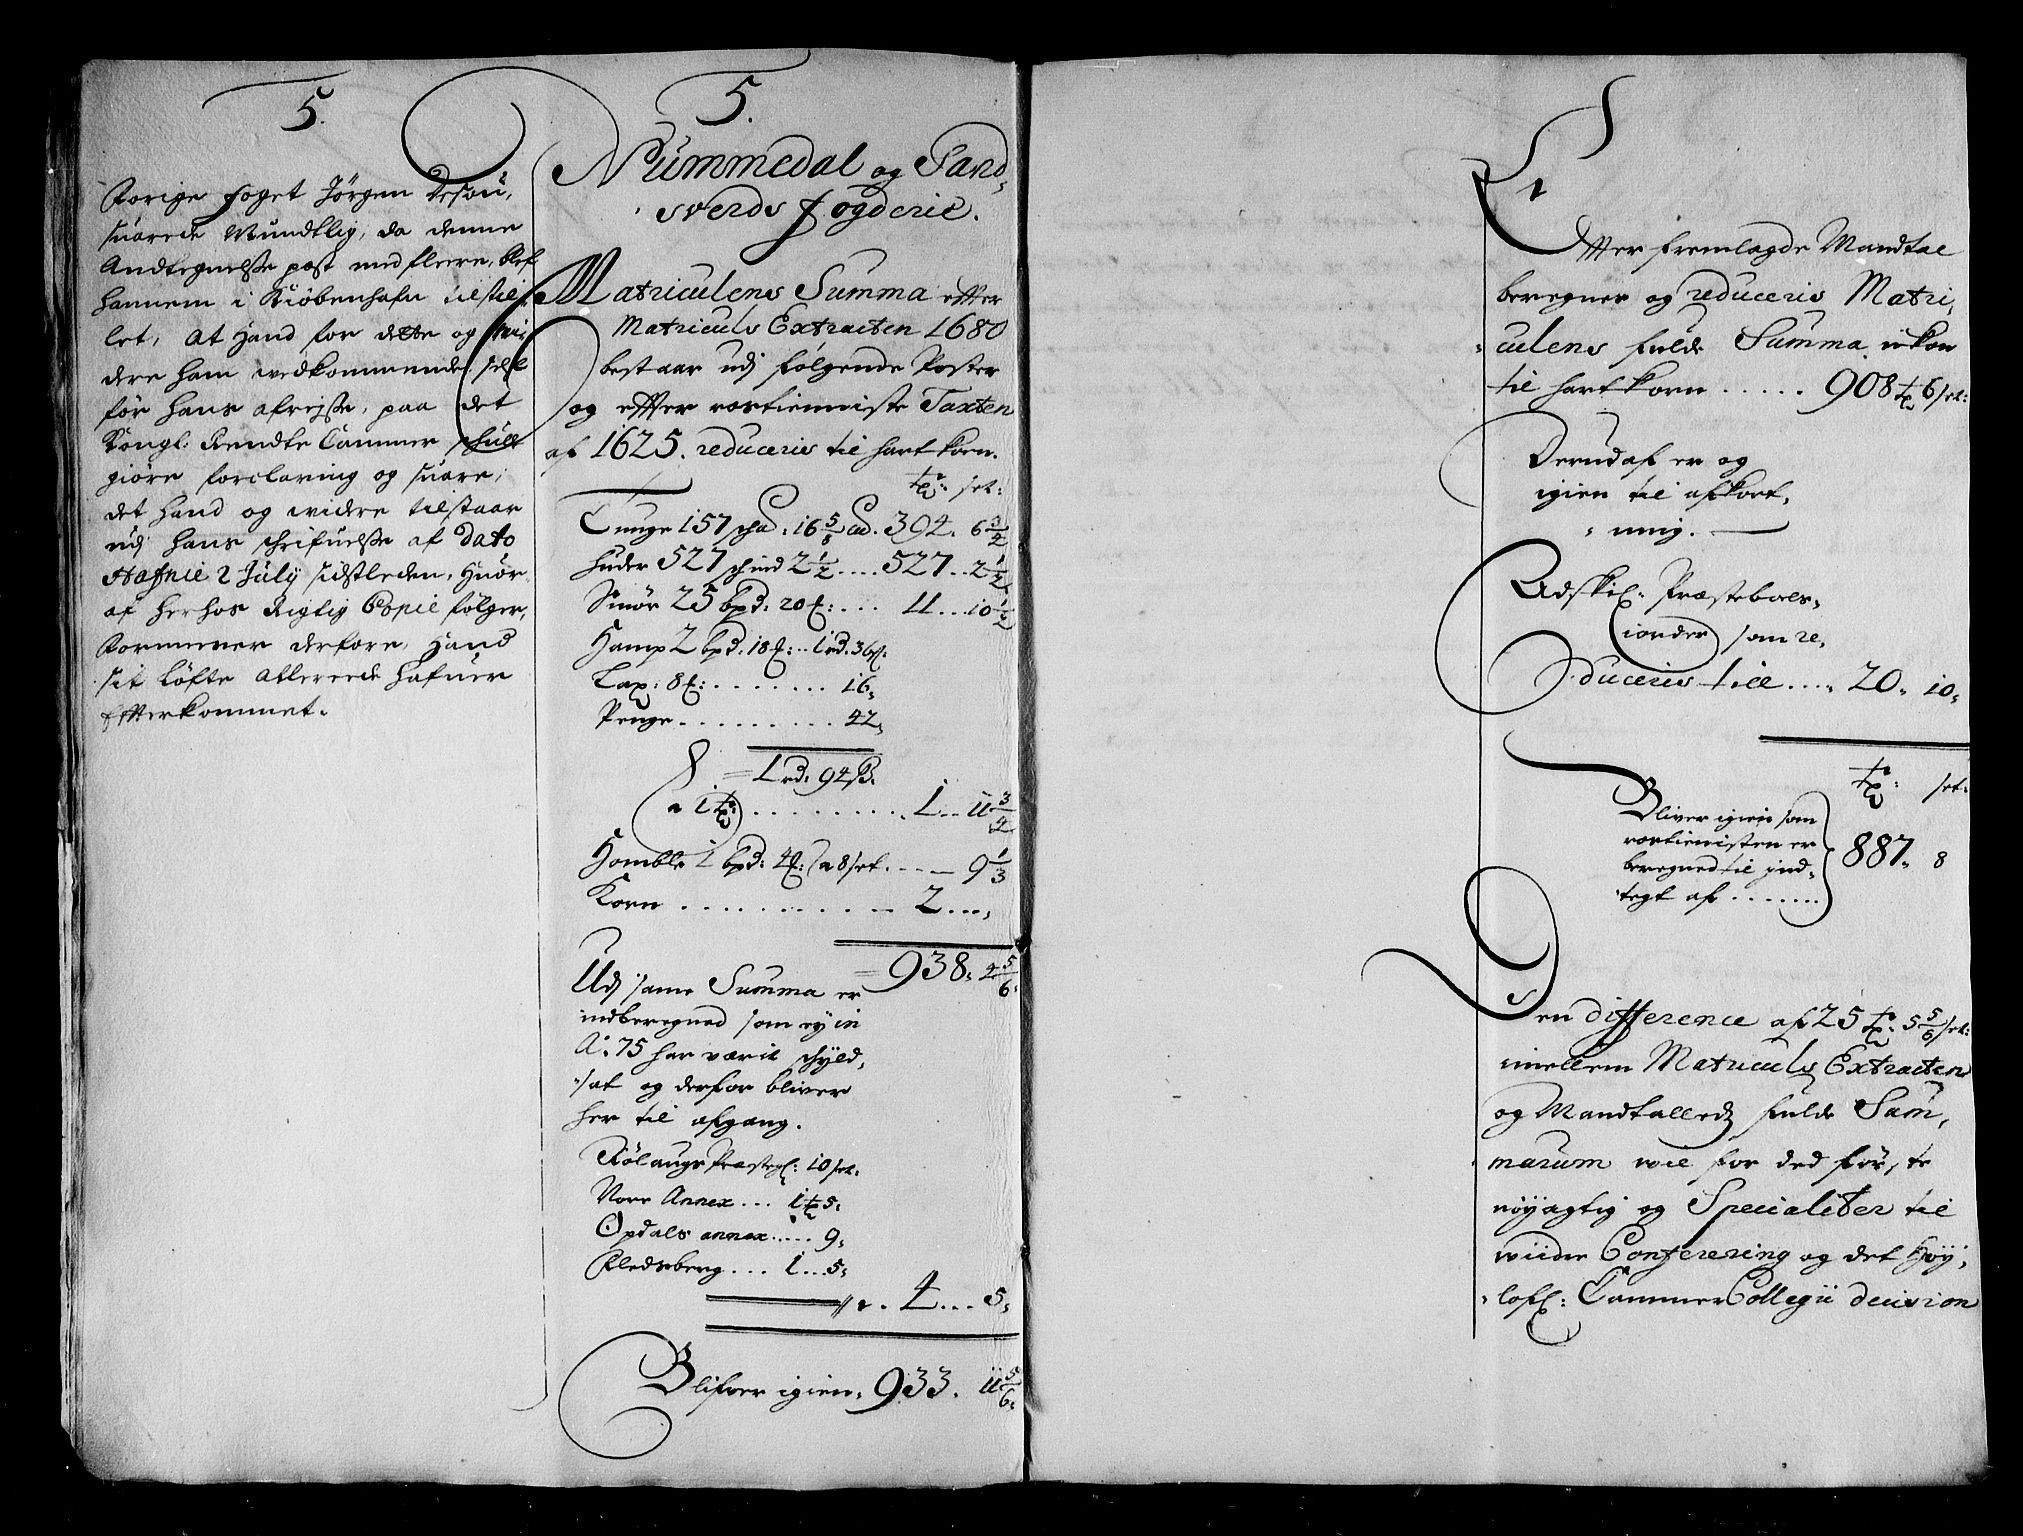 5.
Forige foget Jørgen
suarede Mundtlig, da denne
Andtegnelsse post med fleere, blef
hannem i Kiøbenhafn tilstil,
let, At Hand for dette og vi,
dere ham vedkommende self
før hans afrejsse, paa det
Kongl: Rendte Cammer schulle
giøre forclaring og suare,
det Hand og widre tilstaar
udj hans schrifuelsse af Dato
Hafnie 2 July sidstleden, Huor
af herhos Rigtig Copie følger,
Formener derfore, Hand
sit Løfte allereede hafuer
Efterkommet.
5.
Nummedal og Sand,
sverds fogderie.
Matriculens Summa efter
Matriculs Extracten 1680
bestaar udj følgende Poster
og efter Taxten
af 1625. reduceris til hart korn.
tr: set:
Tunge 157 schd: 16 5/8 ad. 394. 6 3/4
Huder 527 schind 2 1/2 .... 527.. 2 1/2
Smør 25 bpd: 20 £: ... 11 ... 10 1/2
Hamp 2 bpd. 18 £: .. 1 rd. 36 s.
Lax: 8 £: ........ 16,
Penge .......... 42,
1 rd: 94 s.
a 1 tr: .......... 1 .. 11 3/4
Homble 1 bpd: 4 £: a 8 set. .... 9 1/3
Korn .......... 2 ...,
938, 4 5/6
Udj same Summa er
indberegned som ey in
Ao: 75 har værit schyld,
sat og derfor bliver
her til afgang.
Røl augs Prestegl: 10 set.
Nore Annex ... 1 tr 5,
Opdals annex ..... 9,
Fledsberg ... 1 ... 5,
4 ... 5,
Blifver igien, 933. 11 5/6
Efter fremlagde Mandtal
beregnes og reduceris Matri,
culens fulde Summa
til hart korn ..... 908 tr 6 set:
Derudaf er og
igien til afkort,
ning.
Adskil: Præsteboels,
iorder som re,
duceris till .... 20, 10,
tr: set.
Bliver igien som
rostienisten er
beregned til ind,
tegt af ....... 887, 8
Den difference af 25 tr: 5 5/6 set:
imellem Matriculs Extracten
og Mandtalleds fulde Sum,
marum wil for ded første
nøyagtig og Specialiter til
widre Conferering og det Høy,
lofl: Cammer Collegii decision